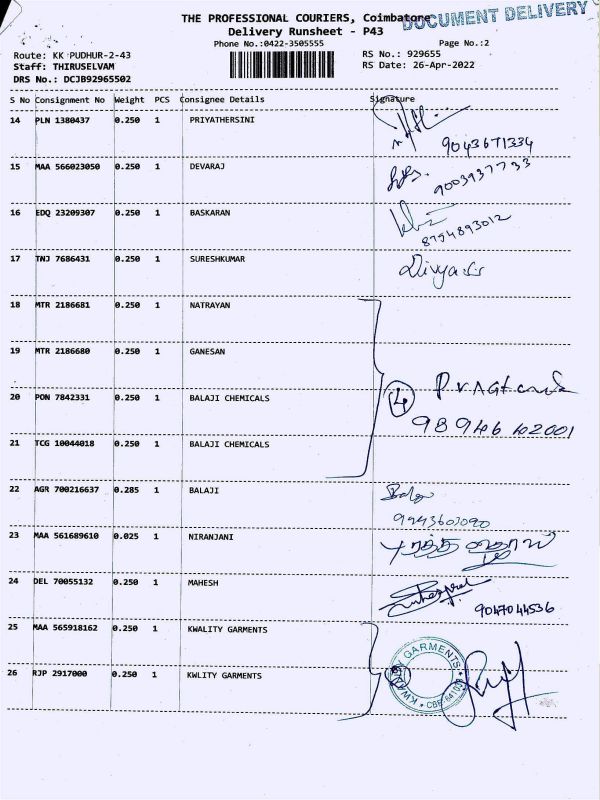 DOCUMENT DELIVERY
THE PROFESSIONAL COURIERS, Coimbatore
Delivery Runsheet - P43
Phone No.:0422-3505555 Page No.:2
Route: KK PUDHUR-2-43 RS No.: 929655
Staff: THIRUSELVAM RS Date: 26-Apr-2022
DRS No.: DCJB92965502
S No Consignment No Weight PCS Consignee Details Signature
14 PLN 1380437 0.250 1 PRIYATHERSINI
9043671334
15 MAA 566023050 0.250 1 DEVARAJ
9003937733
16 EDQ 23209307 0.250 1 BASKARAN
8754893012
17 TNJ 7686431 0.250 1 SURESHKUMAR
18 MTR 2186681 0.250 1 NATRAYAN
19 MTR 2186680 0.250 1 GANESAN
20 PON 7842331 0.250 1 BALAJI CHEMICALS 4
21 TCG 10044018 0.250 1 BALAJI CHEMICALS
22 AGR 700216637 0.285 1 BALAJI
23 MAA 561689610 0.025 1 NIRANJANI
24 DEL 70055132 0.250 1 MAHESH
9047044536
25 MAA 565918162 0.250 1 KWALITY GARMENTS
26 RJP 2917000 0.250 1 KWLITY GARMENTS